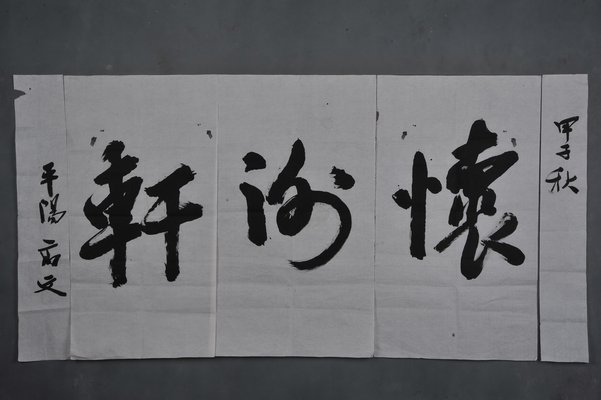 甲子秋
懷沙軒
平陽高文